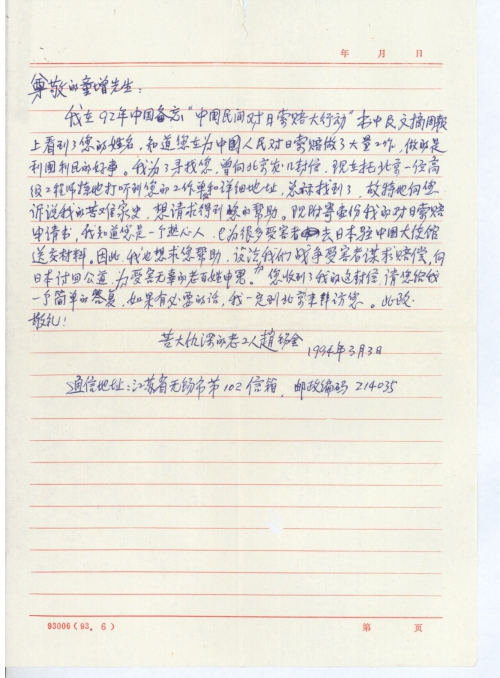 年 月 日
尊敬的童增先生：
我在92年中国备忘"中国民间对日索赔大行动"书中及文摘周报
上看到了您的姓名，知道您在为中国人民对日索赔做了大量工作，做的是
利国利民的好事。我为了寻找您，曾向北京发几封信，现在托北京一位高
级工程师特地打听到您的工作单位和详细地址，总称找到了，故特地向您
诉说我的苦难家史，想请求得到您的帮助。现附寄壹份我的对日索赔
申请书，我知道您是一个热心人，已为很多受害者去日本驻中国大使馆
送交材料。因此，我也想求您帮助，设法我们战争受害者谋求赔偿，向
日本讨回公道，为受害无辜的老百姓申冤。您收到了我的这封信，请您给我
一个简单的答复，如果有必要的话，我一定到北京来拜访您。此致
敬礼！
苦大仇深的老工人 趙錫金
1994年3月3日
通信地址：江苏省无锡市第102信箱，邮政编码 214035
93006（93．6） 第 页